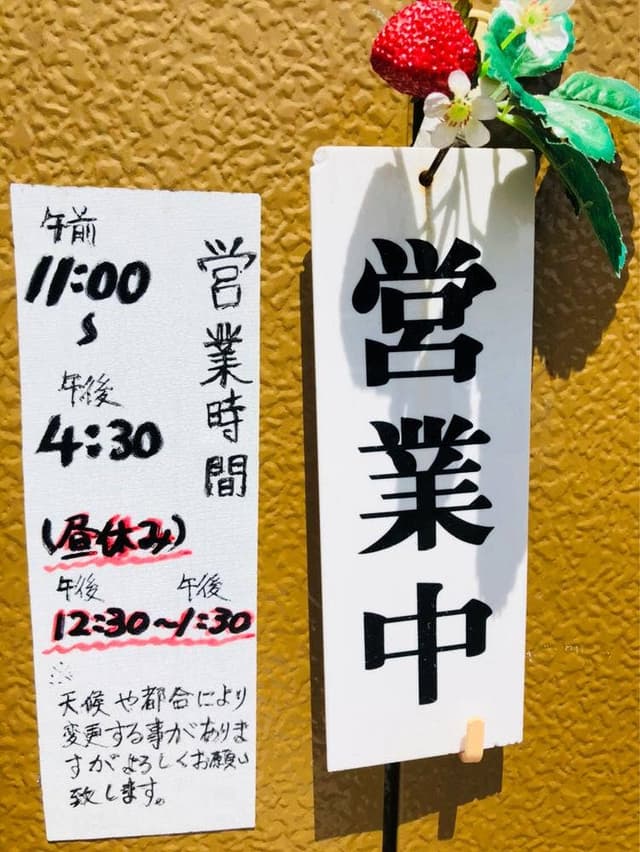 営業時間
午前
11:00
〜
午後
4:30
(昼休み)
午後 午後
12:30〜1:30
※
天候や都合により
変更する事がありま
すがよろしくお願い
致します。
営業中